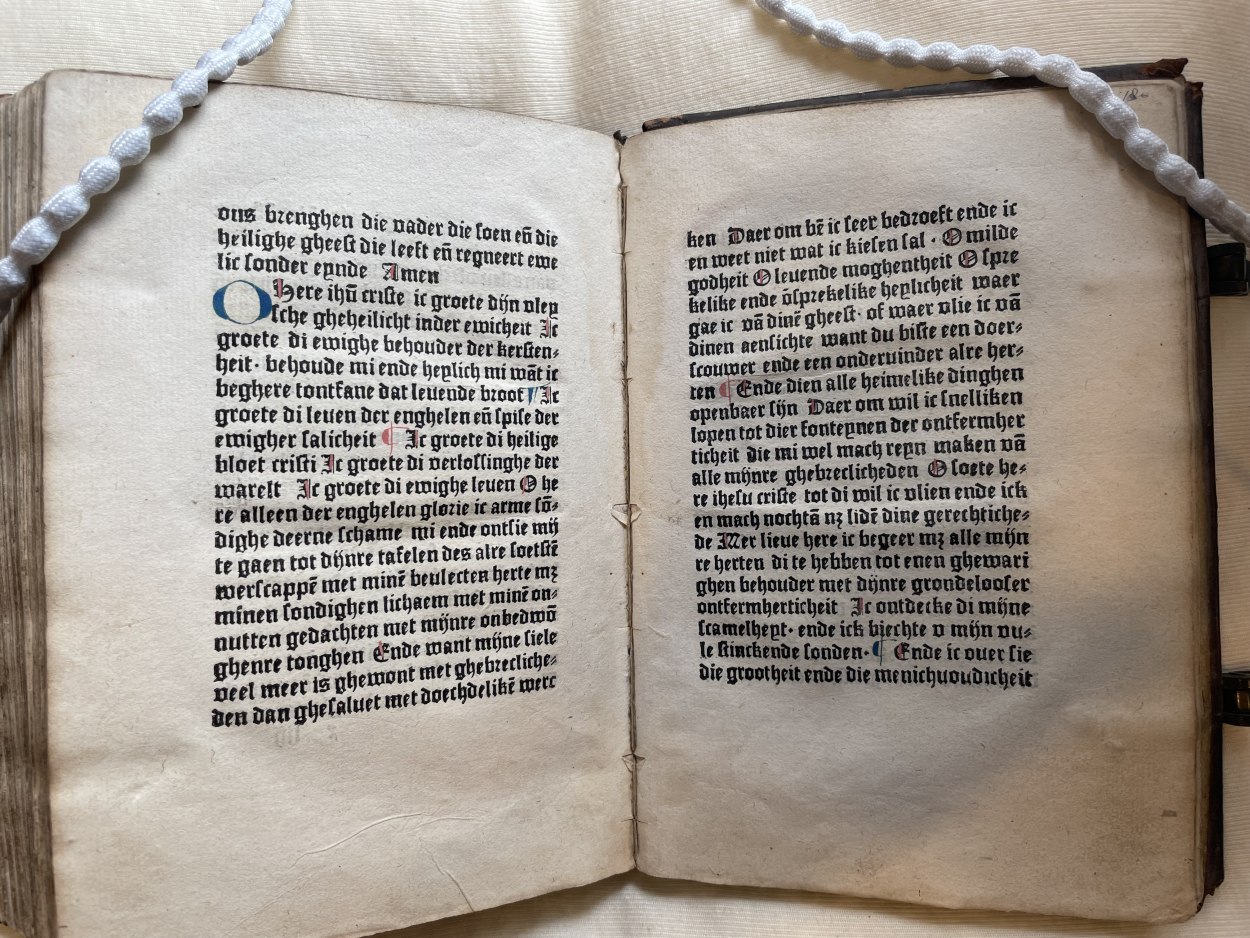 ons brenghen die vader die soen eñ die
heilighe gheest die leeft eñ regneert ewe
lic sonder eynde Amen
O Here ihũ criste ic groete dijn vley
sche gheheilicht inder ewicheit Ic
groete di ewighe behouder der kersten⸗
heit· behoude mi ende heylich mi wãt ic
beghere tontfane dat leuende broot ¶ Ic
groete di leuen der enghelen eñ spise der
ewigher salicheit ¶ Ic groete di heilige
bloet cristi Ic groete di verlossinghe der
warelt Ic groete di ewighe leuen O he
re alleen der enghelen glorie ic arme sõ⸗
dighe deerne schame mi ende ontsie mij
te gaen tot dijnre tafelen des alre soetstẽ
werscappẽ met minẽ beulecten herte mꝫ
minen sondighen lichaem met minẽ on⸗
nutten gedachten met mijnre onbedwõ
ghenre tonghen Ende want mijne siele
veel meer is ghewont met ghebrecliche⸗
den dan ghesaluet met doechdelikẽ werc
ken Daer om bẽ ic seer bedroeft ende ic
en weet niet wat ic kiesen sal · O milde
godheit O leuende moghentheit O spre
kelike ende õsprekelike heylicheit waer
gae ic vã dinẽ gheest· of waer vlie ic vã
dinen aensichte want du biste een doer⸗
scouwer ende een onderuinder alre her⸗
ten ¶ Ende dien alle heimelike dinghen
openbaer sijn Daer om wil ic snelliken
lopen tot dier fonteynen der ontfermher
ticheit die mi wel mach reyn maken vã
alle mijnre ghebreclicheden O soete he⸗
re ihesu criste tot di wil ic vlien ende ick
en mach nochtã nꝫ lidẽ dine gerechtiche⸗
de Mer lieue here ic begeer mꝫ alle mijn
re herten di te hebben tot enen ghewari
ghen behouder met dijnre grondelooser
ontfermherticheit Ic ontdecke di mijne
scamelheyt· ende ick biechte v mijn vu⸗
le stinckende sonden· ¶ Ende ic ouer sie
die grootheit ende die menichuoudicheit